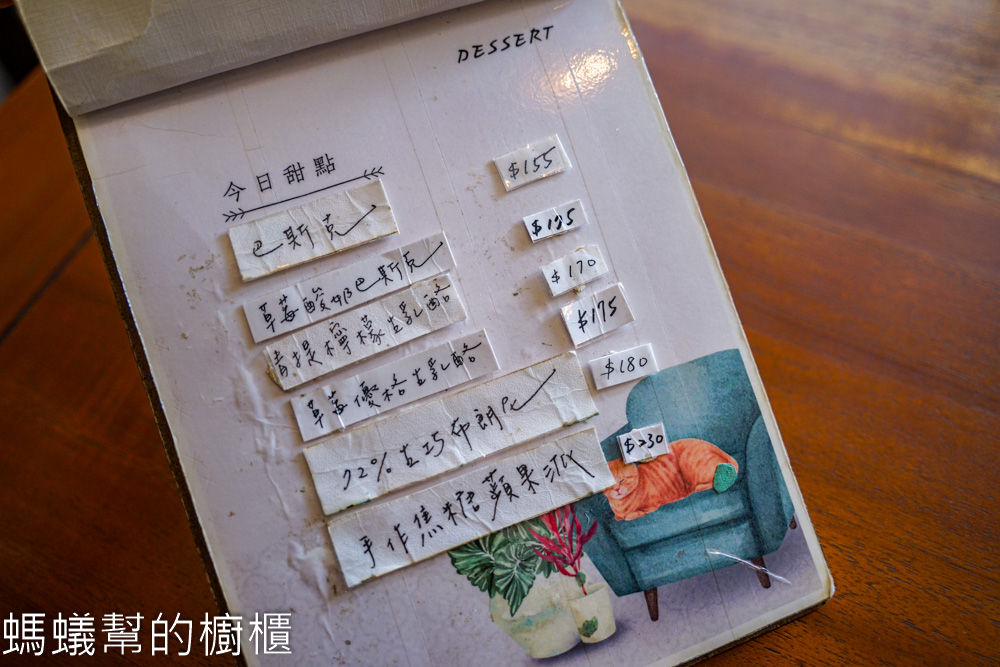 DESSERT
今日甜點
巴斯克 $155
草莓酸奶巴斯克 $195
青提檸檬生乳酪 $170
草莓優格生乳酪 $175
72%生巧布朗尼 $180
手作焦糖蘋果派 $230
螞蟻幫的櫥櫃